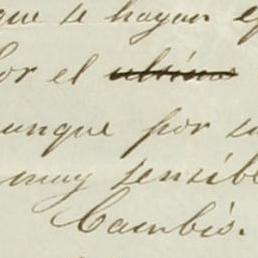 que se hayan
por el ultimo
aunque por su
muy sensible
Cambio.